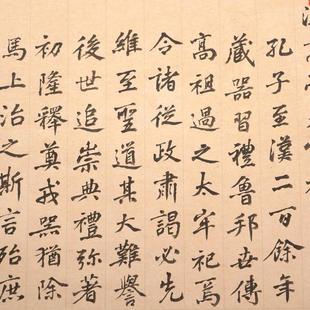 孔子至漢二百餘年
藏器習禮魯邦世傳
高祖過之太牢祀焉
令諸從政肅謁必先
維至聖道其大難譽
後世追崇典禮弥著
初隆釋奠戎器猶除
馬上治之斯言殆庶